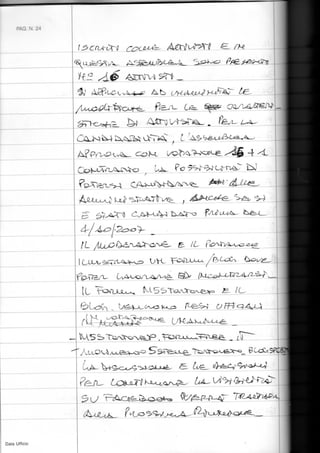 PAG. N. 24
ISCRITTI COME ATTIVISTI E IN
QUESTA ASSEMBLEA SONO PRESENTI
N° 16 ATTIVISTI
SI APPROVA AD UNANIMITÀ LE
MODIFICHE PER LE
DI ATTIVISTA. PER LA
CANDIDABILITÀ, L'ASSEMBLEA
APPROVA CON VOTAZIONE 15 + 1
CONTRARIO, LA POSSIBILITÀ DI
POTERSI CANDIDARE ALLE
AMMINISTRATIVE, ANCHE SE SI
È STATI CANDIDATO PRIMA DEL
4/10/2007.
IL MODERATORE E IL PORTAVOCE
ILLUSTRANO UN FORUM/BLOG DOVE
POTER LAVORARE ED INCONTRARSI.
IL FORUM M5STARANTO E IL
BLOG VERRANNO RESI UFFICIALI
VOTAZIONE UNANIME
M5STARANTO.FORUMFREE.IT
TARANTO.BLOGSPOT
LA DISCUSSIONE E LE DECISIONI
PER CONTINUARE LA VISIBILITÀ
SU FACEBOOK VERRÀ TRATTATA
ALLA PROSSIMA RIUNIONE.
Data Ufficio